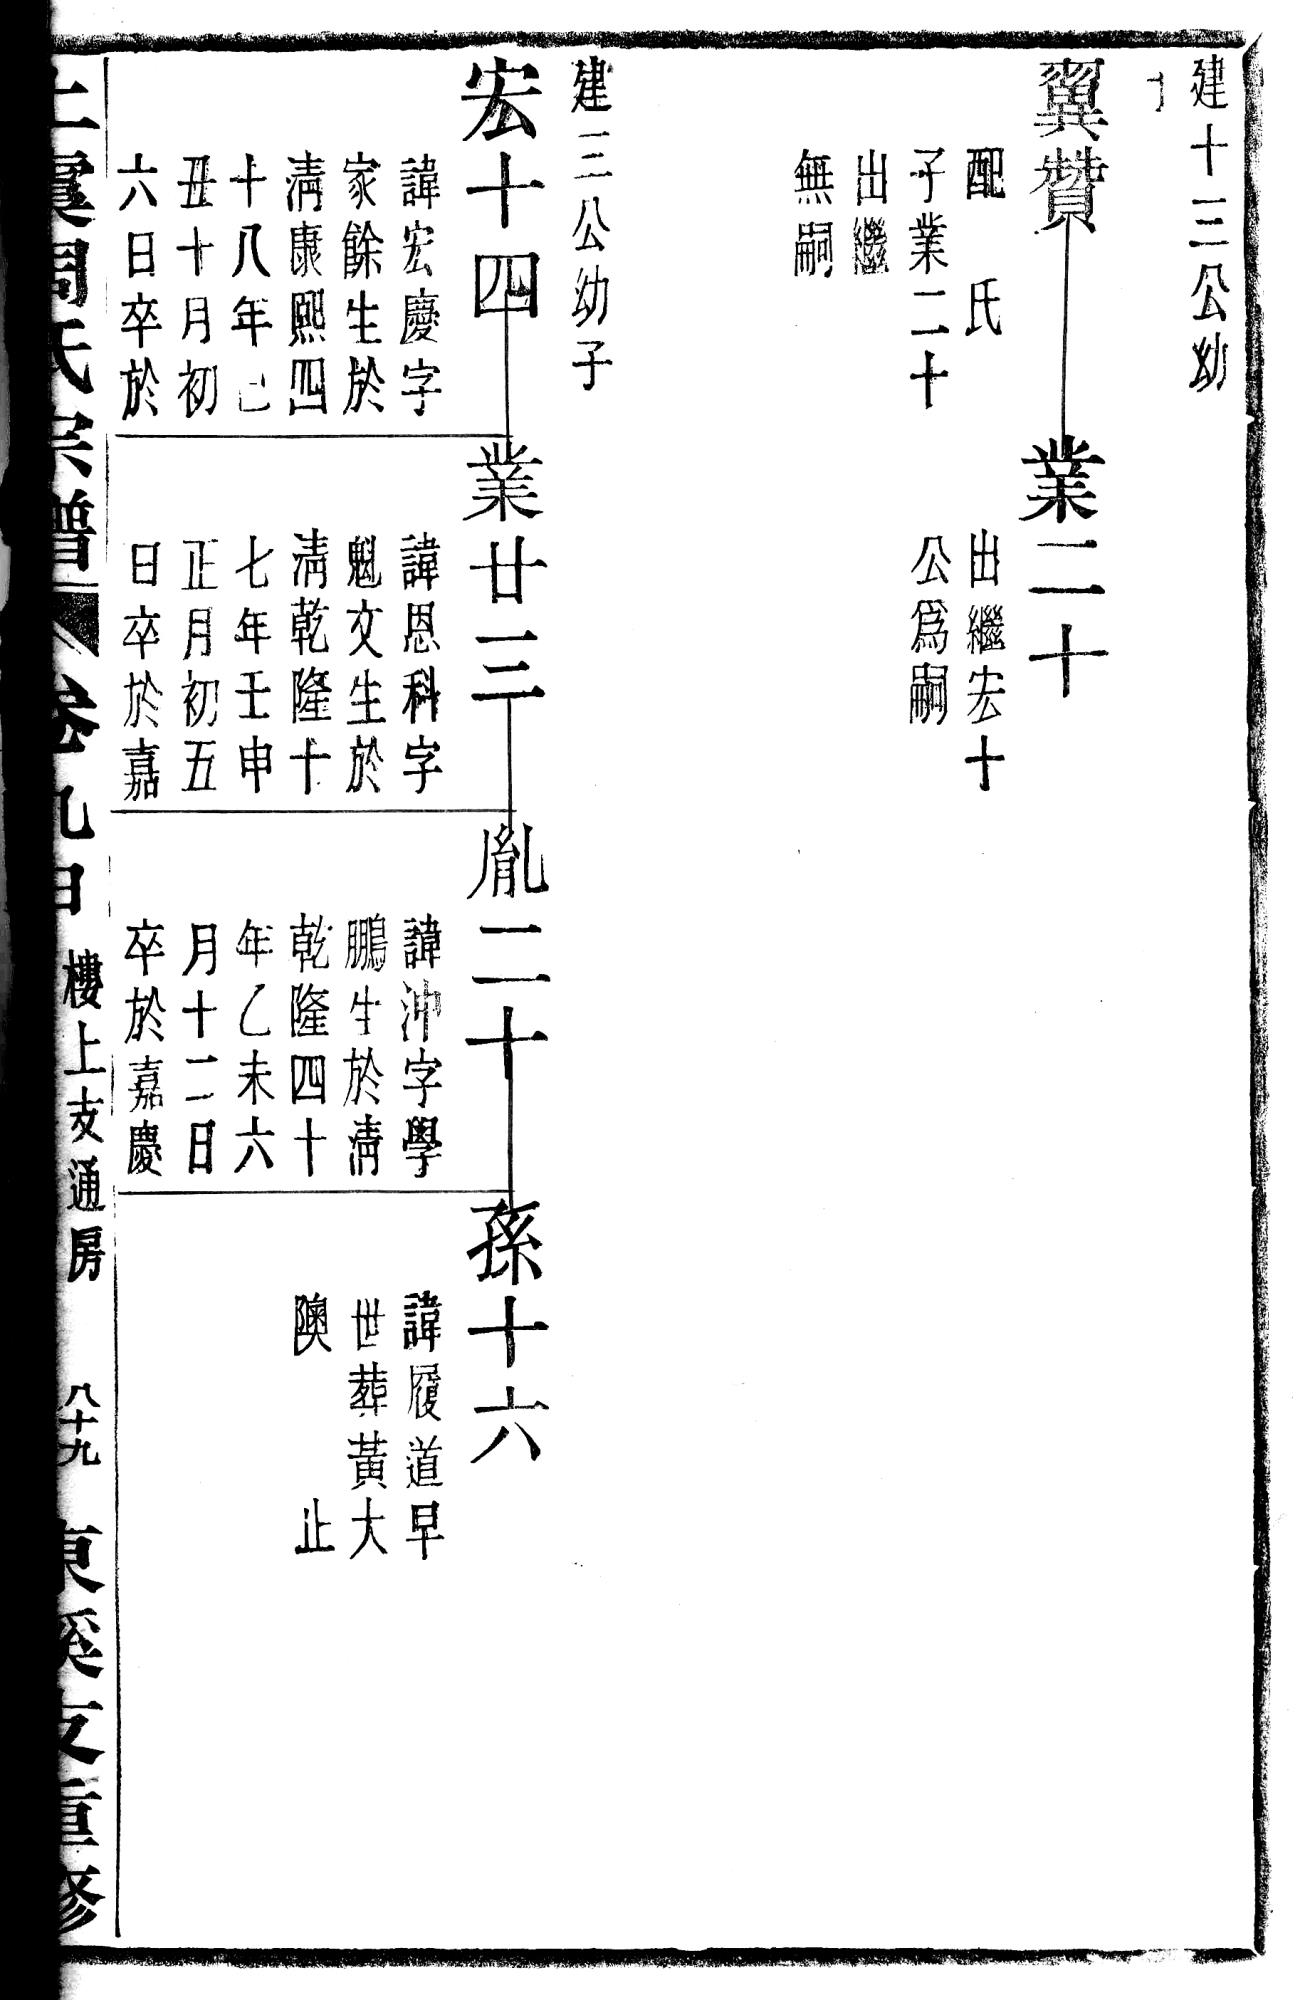 建十三公幼
子
翼贊
配　氏
子業二十
出繼
無嗣
業二十
出繼宏十
公爲嗣
建三公幼子
宏十四
諱宏慶字
家餘生於
淸康熙四
十八年己
丑十月初
六日卒於
業廿三
諱恩科字
魁文生於
淸乾隆十
七年壬申
正月初五
日卒於嘉
胤二十
諱沖字學
鵬生於淸
乾隆四十
年乙未六
月十二日
卒於嘉慶
孫十六
諱履道早
世葬黃大
隩　止
上虞周氏宗譜 卷九中 樓上支通房 八十九 東溪友重修